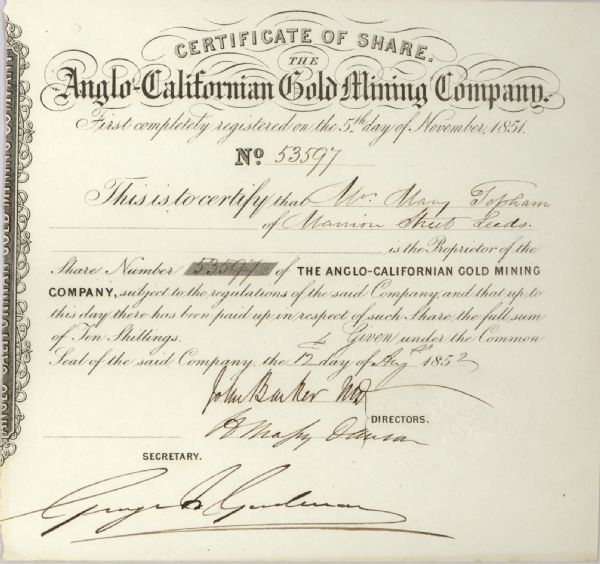 CERTIFICATE OF SHARE.
THE
Anglo-Californian Gold Mining Company.
First completely registered on the 5th day of November, 1851.
No 53597
This is to certify that Mrs. Mary Topham
of Marrion Street Leeds.
is the Proprietor of the
Share Number 53597 of THE ANGLO-CALIFORNIAN GOLD MINING
COMPANY, subject to the regulations of the said Company, and that up to
this day there has been paid up in respect of such Share, the full sum
of Ten Shillings. Given under the Common
Seal of the said Company, the 12 day of Augst 1852
John Barker MD
DIRECTORS.
SECRETARY.
ANGLO-CALIFORNIAN GOLD MINING COMPANY